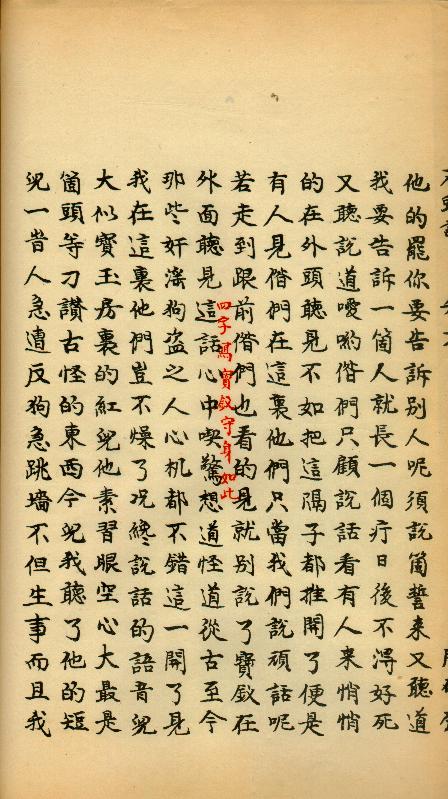 他的罷你要告訴别人呢須説箇誓来又聽道
我要告訴一箇人就長一個疔日後不淂好死
又聽説道噯喲偺們只顧説話看有人来悄悄
的在外頭聽見不如把這隔子都推開了便是
有人見偺們在這裏他們只當我們説頑話呢
若走到跟前偺們也看的見就别説了寶釵在
四字寫寶釵守身如此
外面聽見這話心中喫驚想道怪道從古至今
那些奸滛狗盗之人心机都不錯這一開了見
我在這裏他們豈不燥了况縂説話的語音兒
大似寶玉房裏的紅兒他素習眼空心大最是
箇頭等刁讚古怪的東西今兒我聽了他的短
兒一昔人急遭反狗急跳墻不但生事而且我